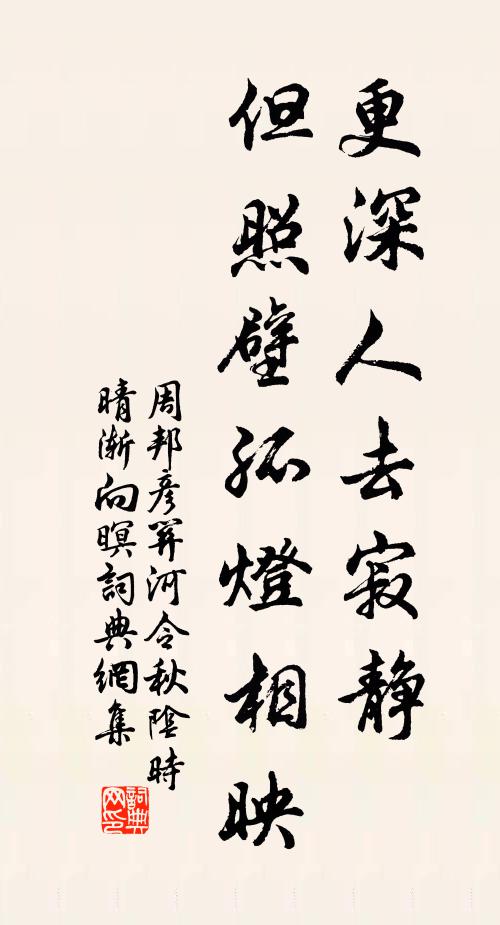 更深人去寂静
但照壁孤燈相映
周邦彦關河令秋陰時
晴漸向暝詞典網集
詞典
网印